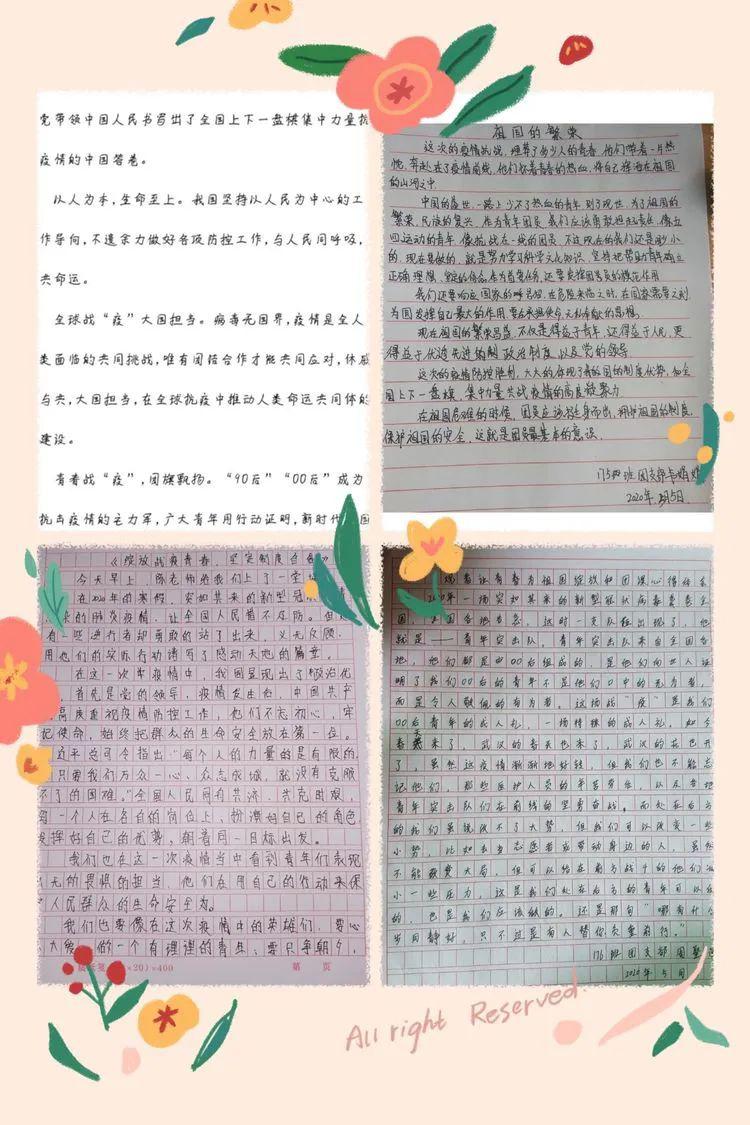 党带领中国人民书写出了全国上下一盘棋集中力量抗
疫情的中国答卷。
以人为本,生命至上。我国坚持以人民为中心的工
作导向,不遗余力做好各项防控工作,与人民同呼吸,
共命运。
全球战“疫”大国担当。病毒无国界,疫情是全人
类面临的共同挑战,唯有团结合作才能共同应对,休戚
与共,大国担当,在全球抗疫中推动人类命运共同体的
建设。
青春战“疫”,团旗飘扬。“90后”“00后”成为
抗击疫情的主力军,广大青年用行动证明,新时代
祖国的繁荣
这次的疫情抗战,埋葬了多少人的青春,他们带着一片热
忱,奔赴在了疫情前线,他们怀着青春的热血,将自己挥洒在祖国
的山河之中
中国的盛世,一路上少不了热血的青年,到了现世,为了祖国的
繁荣,民族的复兴,作为青年团员,我们应该勇敢担起责任,像五
四运动的青年,像抗战在一线的团员,不过现在的我们还是渺小
的,现在要做的,就是努力学习科学文化知识,坚持把帮助青年确立
正确理想、坚定的信念作为首要任务,还要发挥团员的模范作用
我们还要响应国家的呼召,在危险来临之时,在国家需要之刻
为国发挥自己最大的作用,要有承担使命,无私奉献的思想。
现在祖国的繁荣昌盛,不仅是得益于青年,还得益于人民,更
得益于优越先进的制 政治制度,以及党的领导
这次的疫情防控胜利,大大的体现了我的国的制度优势,如全
国上下一盘棋,集中力量共战疫情的高度凝聚力
在祖国危难的时候,团员应该挺身而出,拥护祖国的制度,
保护祖国的安全,这就是团员最基本的意识。
班团支部
2020年 月5日
《绽放战疫青春,坚定制度自信》
今天早上,陈老师给我们上了一堂
在2020年的寒假,突如其来的新型冠
的肺炎疫情,让全国人民措不及防。但
有一些逆行者却勇敢的站了出来,义无反顾,
用他们的实际行动谱写了感动天地的篇章。
在这一次举疫情中,我国呈现出了政治优
首先是党的领导,疫情发生后,中国共产
高度重视疫情防控工作,他们不忘初心,牢
记使命,始终把群众的生命安全放在第一位。
近平总司令指出“每个人的力量的是有限的,
只要我们万众一心、众志成城,就没有克服
不了的困难。”全国人民同舟共济,共克时艰,
每一个人在各自的岗位上,扮演好自己的角色
发挥好自己的优势,朝着同一目标出发。
我们也在这一次疫情当中看到青年们表现
无的畏惧的担当,他们在用自己的行动来保
人民群众的生命安全为。
我们也要像在这次疫情中的英雄们,要心
大爱,做一个有理理的青年,要只争朝夕,
20)=400 第 页
青春为祖国绽放和团课心得体会
2020年一场突如其来的新型冠状病毒袭卷全
国,全国各地告急,这时一支队伍出现了,他
就是——青年突击队,青年突击队来自全国各
地,他们都是由00后组成的,是他们向世人证
明了我们00后的青年不是他们口中的无为者,
而是令人敬佩的有为者。这场战“疫”是我们
00后青年的成人礼,一场特殊的成人礼,如今
春天来了,武汉的春天也来了,武汉的花也开
了,虽然这疫情渐渐地好转,但我们也不能忘
记他们,那些医护人员的辛苦劳作,以及各地
青年突击队们在前线的坚勇奋战。而处在后方
的我们虽说改不了大势,但我们可以改变一些
小势,比如去当志愿者或带动身边的人,虽然
不能改变大局,但可以给在前方战斗的他们减
小一些压力,这是我们处在后方的青年可以做
的,也是我们应该做的。还是那句“哪有什么
岁月静好,只不过是有人替你负重前行。”
176班团支部 周
2020年5月
All right Reserved.